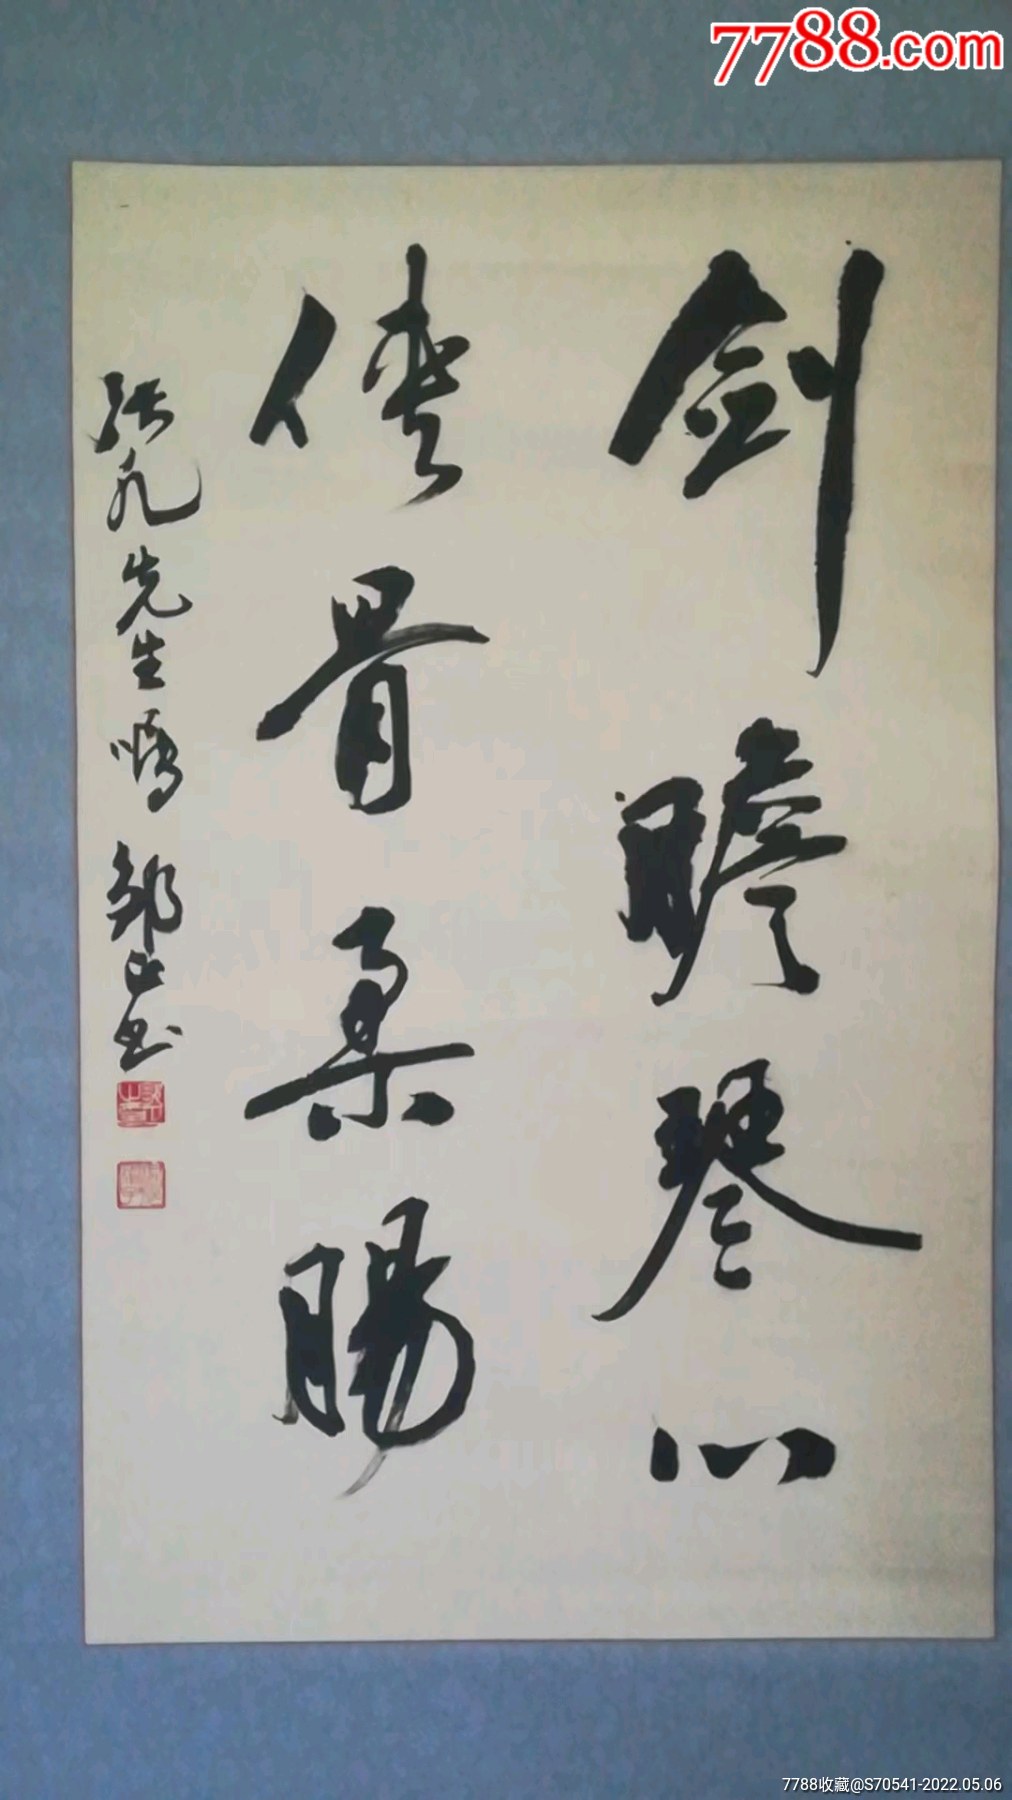 7788.com
剑膽琴心
侠骨柔腸
张凡先生嘱 邹正书
7788收藏@S70541-2022.05.06